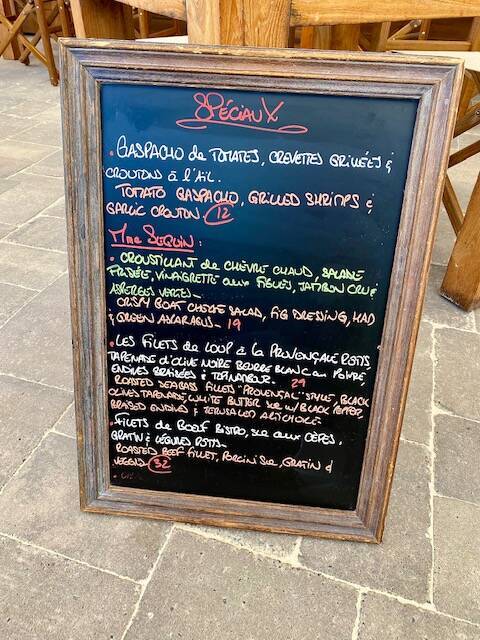 SPÉCIAUX
• GASPACHO de TOMATES, CREVETTES GRILLÉES &
CROUTONS à l'AIL.
TOMATO GASPACHO, GRILLED SHRIMPS &
GARLIC CROUTON. 12
Mme SEGUIN:
• CROUSTILLANT de CHÈVRE CHAUD, SALADE
FRISÉE, VINAIGRETTE aux FIGUES, JAMBON CRU &
ASPERGES VERTES_
CRISPY GOAT CHEESE SALAD, FIG DRESSING, HAM
& GREEN ASPARAGUS_ 19
• LES FILETS de LOUP à la PROVENÇALE ROTIS,
TAPENADE d'OLIVE NOIRE BEURRE BLANC au POIVRE,
ENDIVES BRAISÉES & TOPINAMBOUR. 29
ROASTED SEABASS FILLETS "PROVENÇAL" STYLE, BLACK
OLIVES TAPENADE, WHITE BUTTER W/BLACK PEPPER,
BRAISED ENDIVES & JERUSALEM ARTICHOKE
• FILETS de BOEUF BISTRO, SCE aux CÈPES,
GRATIN & LÉGUMES ROTIS_
ROASTED BEEF FILLET, PORCINI SCE, GRATIN &
VEGGIES 32